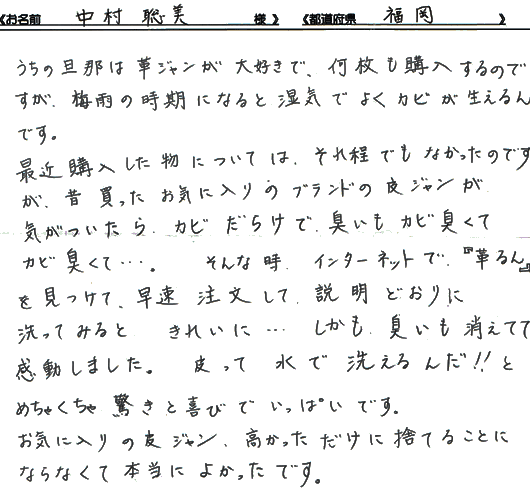 《お名前 中村 聡美 様》 《都道府県 福岡 》
うちの旦那は革ジャンが大好きで、何枚も購入するので
すが、梅雨の時期になると湿気でよくカビが生えるん
です。
最近購入した物については、それ程でもなかったのです
が、昔買ったお気に入りのブランドの皮ジャンが
気がついたら、カビだらけで、臭いもカビ臭くて
カビ臭くて…。 そんな時、インターネットで、『革るん』
を見つけて、早速注文して、説明どおりに
洗ってみると きれいに… しかも、臭いも消えてて
感動しました。 皮って水で洗えるんだ!!と
めちゃくちゃ驚きと喜びでいっぱいです。
お気に入りの皮ジャン、高かっただけに捨てることに
ならなくて本当によかったです。